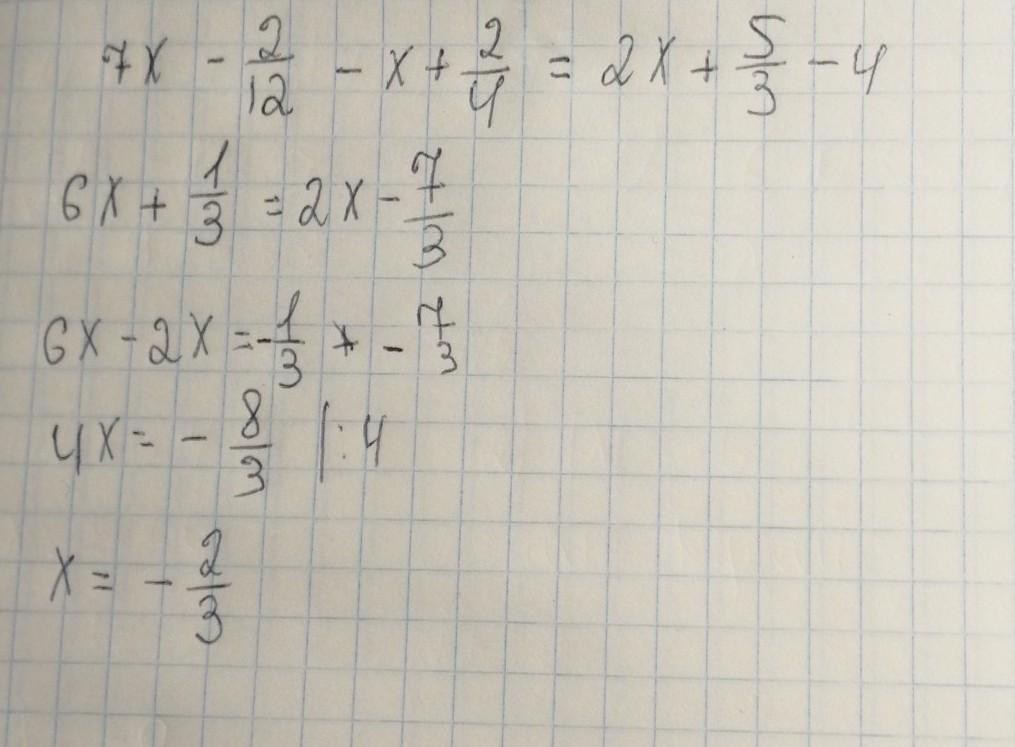 7x - 2/12 - x + 2/4 = 2x + 5/3 - 4
6x + 1/3 = 2x - 7/3
6x - 2x = -1/3 + - 7/3
4x = - 8/3 |:4
x = - 2/3